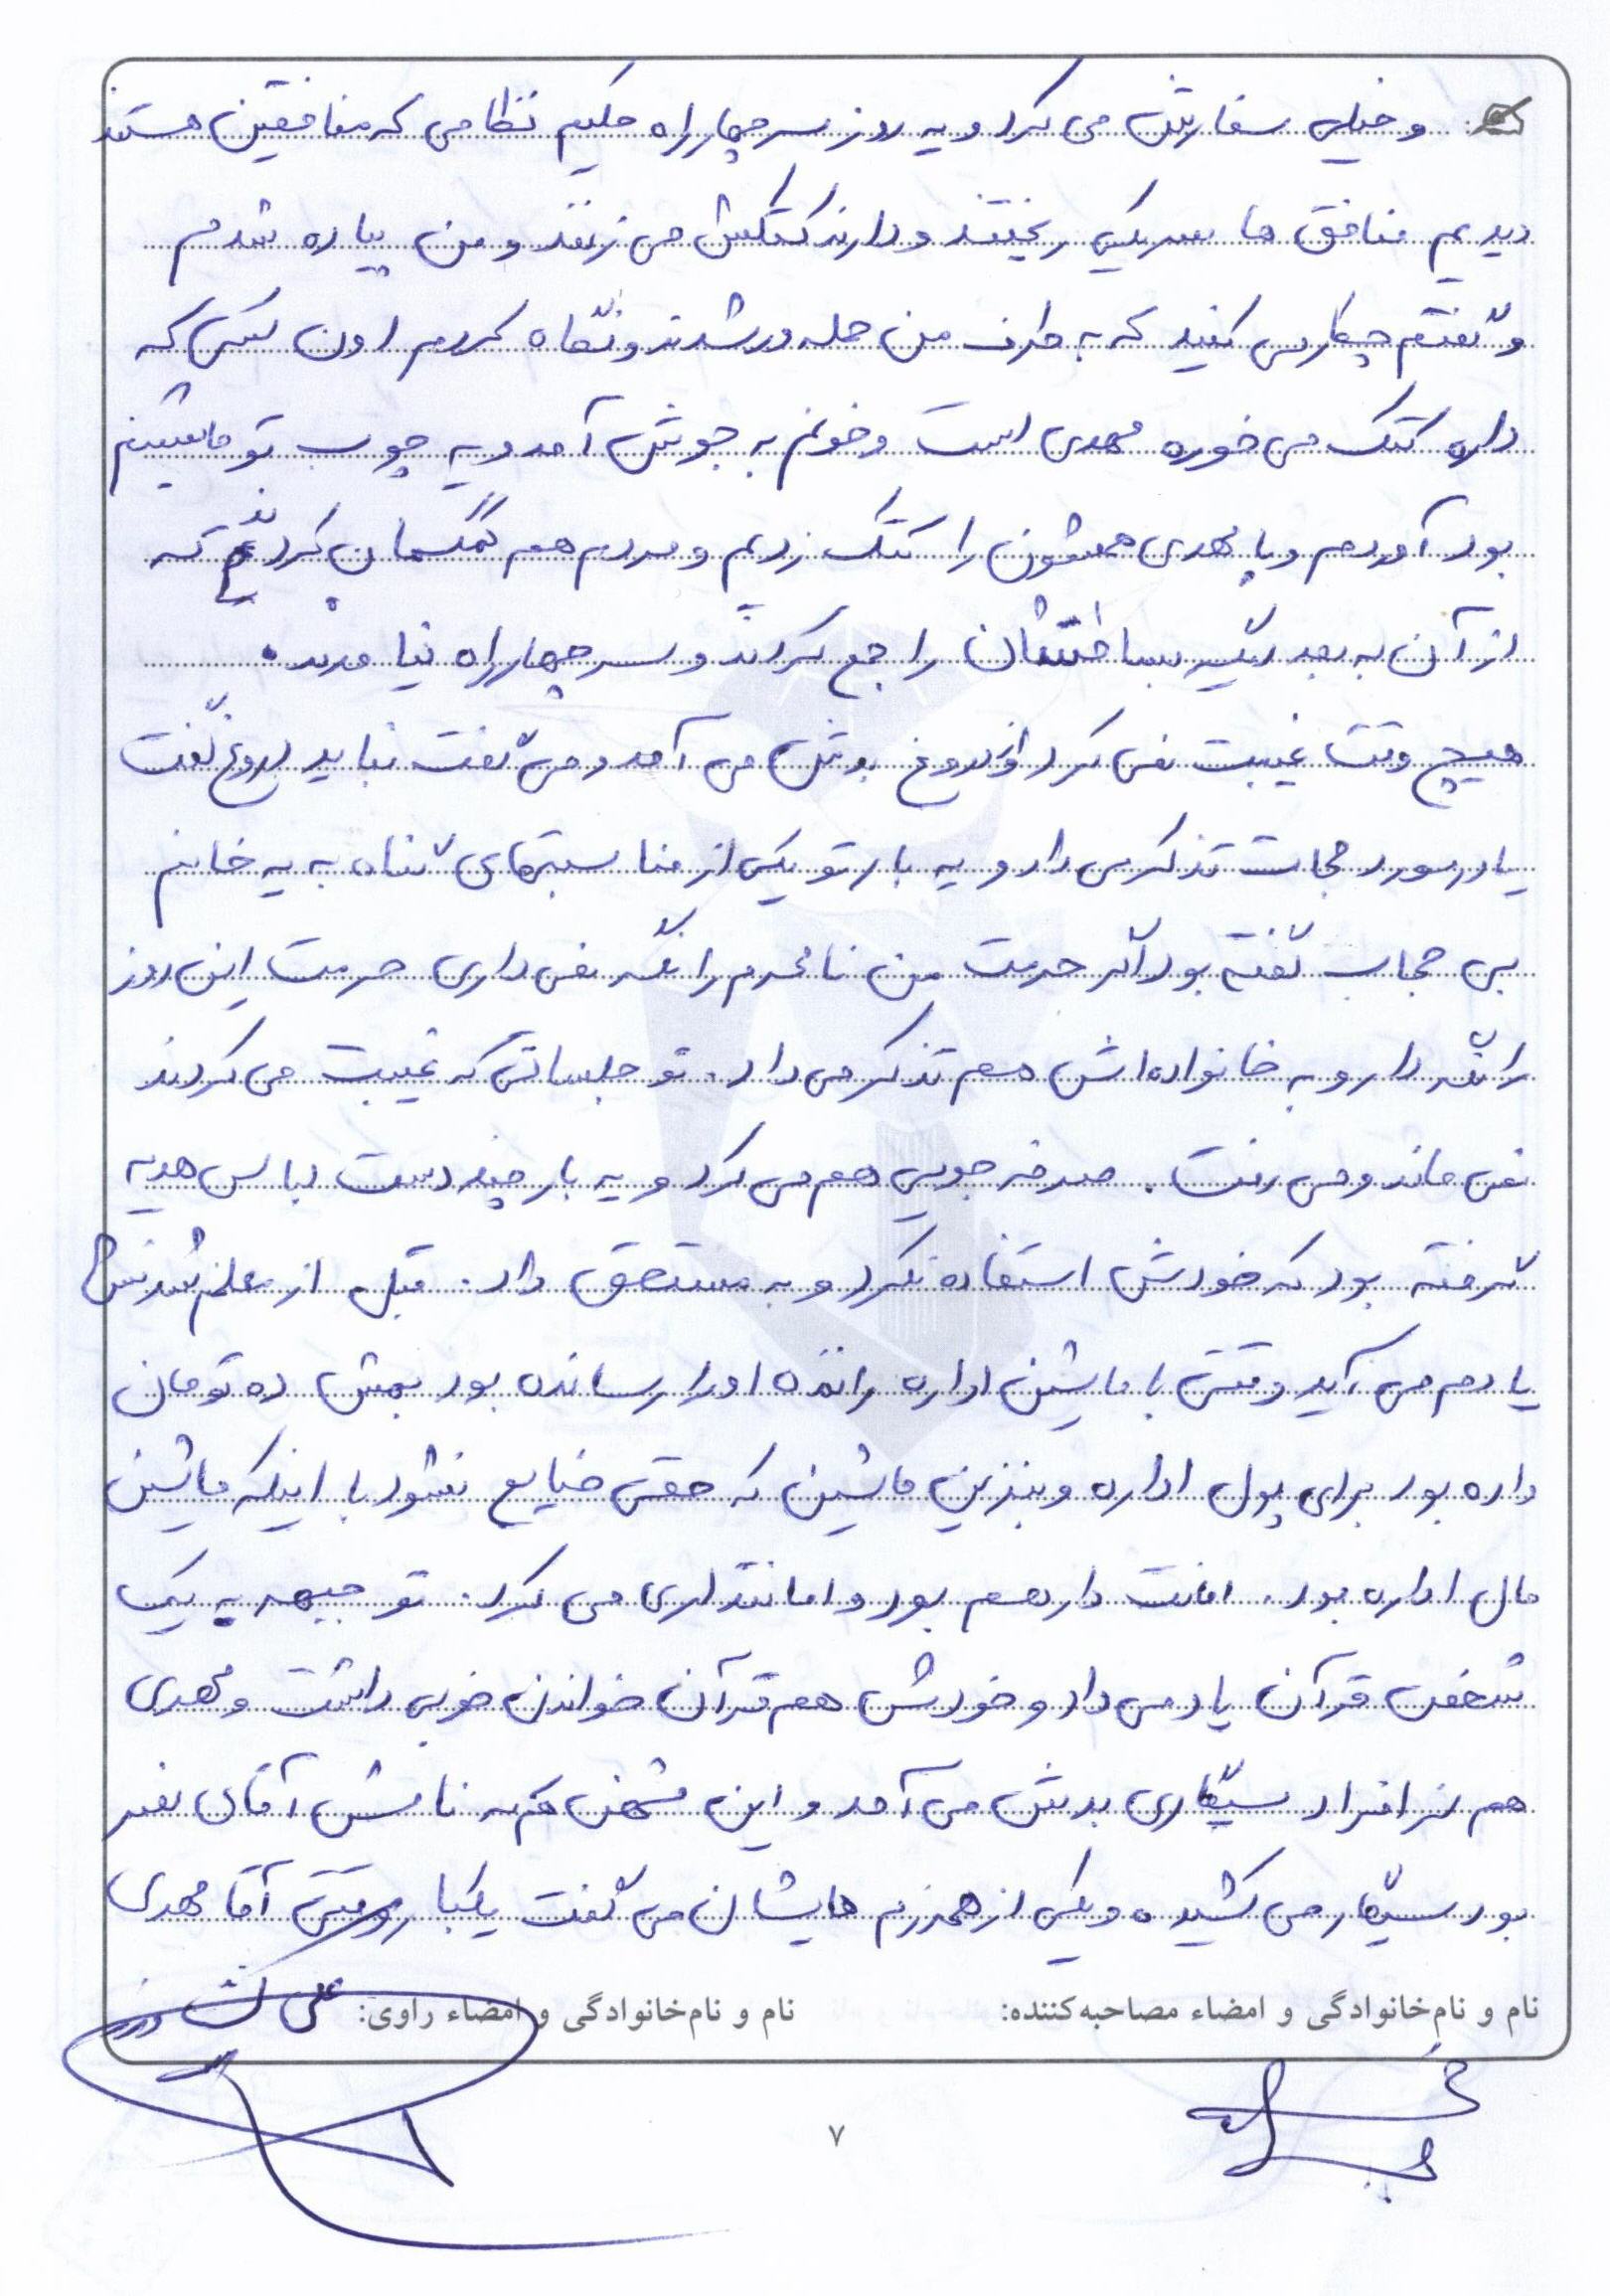 و خیلی سفارش می کرد و یه روز سر چهارراه حکیم نظامی که منافقین هستند
دیدیم منافق ها سر یکی ریختند و دارند کتکش می زنند و من پیاده شدم
و گفتم چیکار می کنید که به طرف من حمله ور شدند و نگاه کردم اون کسی که
داره کتک می خوره مهدی است و خونم به جوش آمد و یه چوب تو ماشینم
بود آوردم و با مهدی همشون را کتک زدیم و مردم هم کمکمان کردند که
از آن به بعد دیگر بساطشان را جمع کردند و سر چهارراه نیامدند.
هیچ وقت غیبت نمی کرد از دروغ بدش می آمد و می گفت نباید دروغ گفت
یا در مورد حجاب تذکر می داد و یه بار تو یکی از مناسبتهای گناه به یه خانم
بی حجاب گفته بود اگر حرمت من نامحرم را نگه نمی داری حرمت این روز
را نگه دار و به خانواده اش هم تذکر می داد. تو جلساتی که غیبت می کردند
نمی ماند و می رفت. صرفه جویی هم می کرد و یه بار چند دست لباس هدیه
گرفته بود که خودش استفاده نکرد و به مستحق داد. قبل از معلم شدنش
یادم می آید وقتی با ماشین اداره راننده او را رسانده بود بهش ده تومان
داده بود برای پول اداره و بنزین ماشین که حقی ضایع نشود با اینکه ماشین
مال اداره بود. امانت دار هم بود و امانتداری می کرد. تو جبهه به یک
شخصی قرآن یاد می داد و خودش هم قرآن خواندن خوبی داشت و مهدی
هم از افراد سیگاری بدش می آمد و این شخص که نامش آقای نصر
بود سیگار می کشیده و یکی از همرزم هایشان می گفت یکبار وقتی آقا مهدی
نام و نام‌خانوادگی و امضاء مصاحبه‌کننده:
نام و نام‌خانوادگی و امضاء راوی: علی
۷